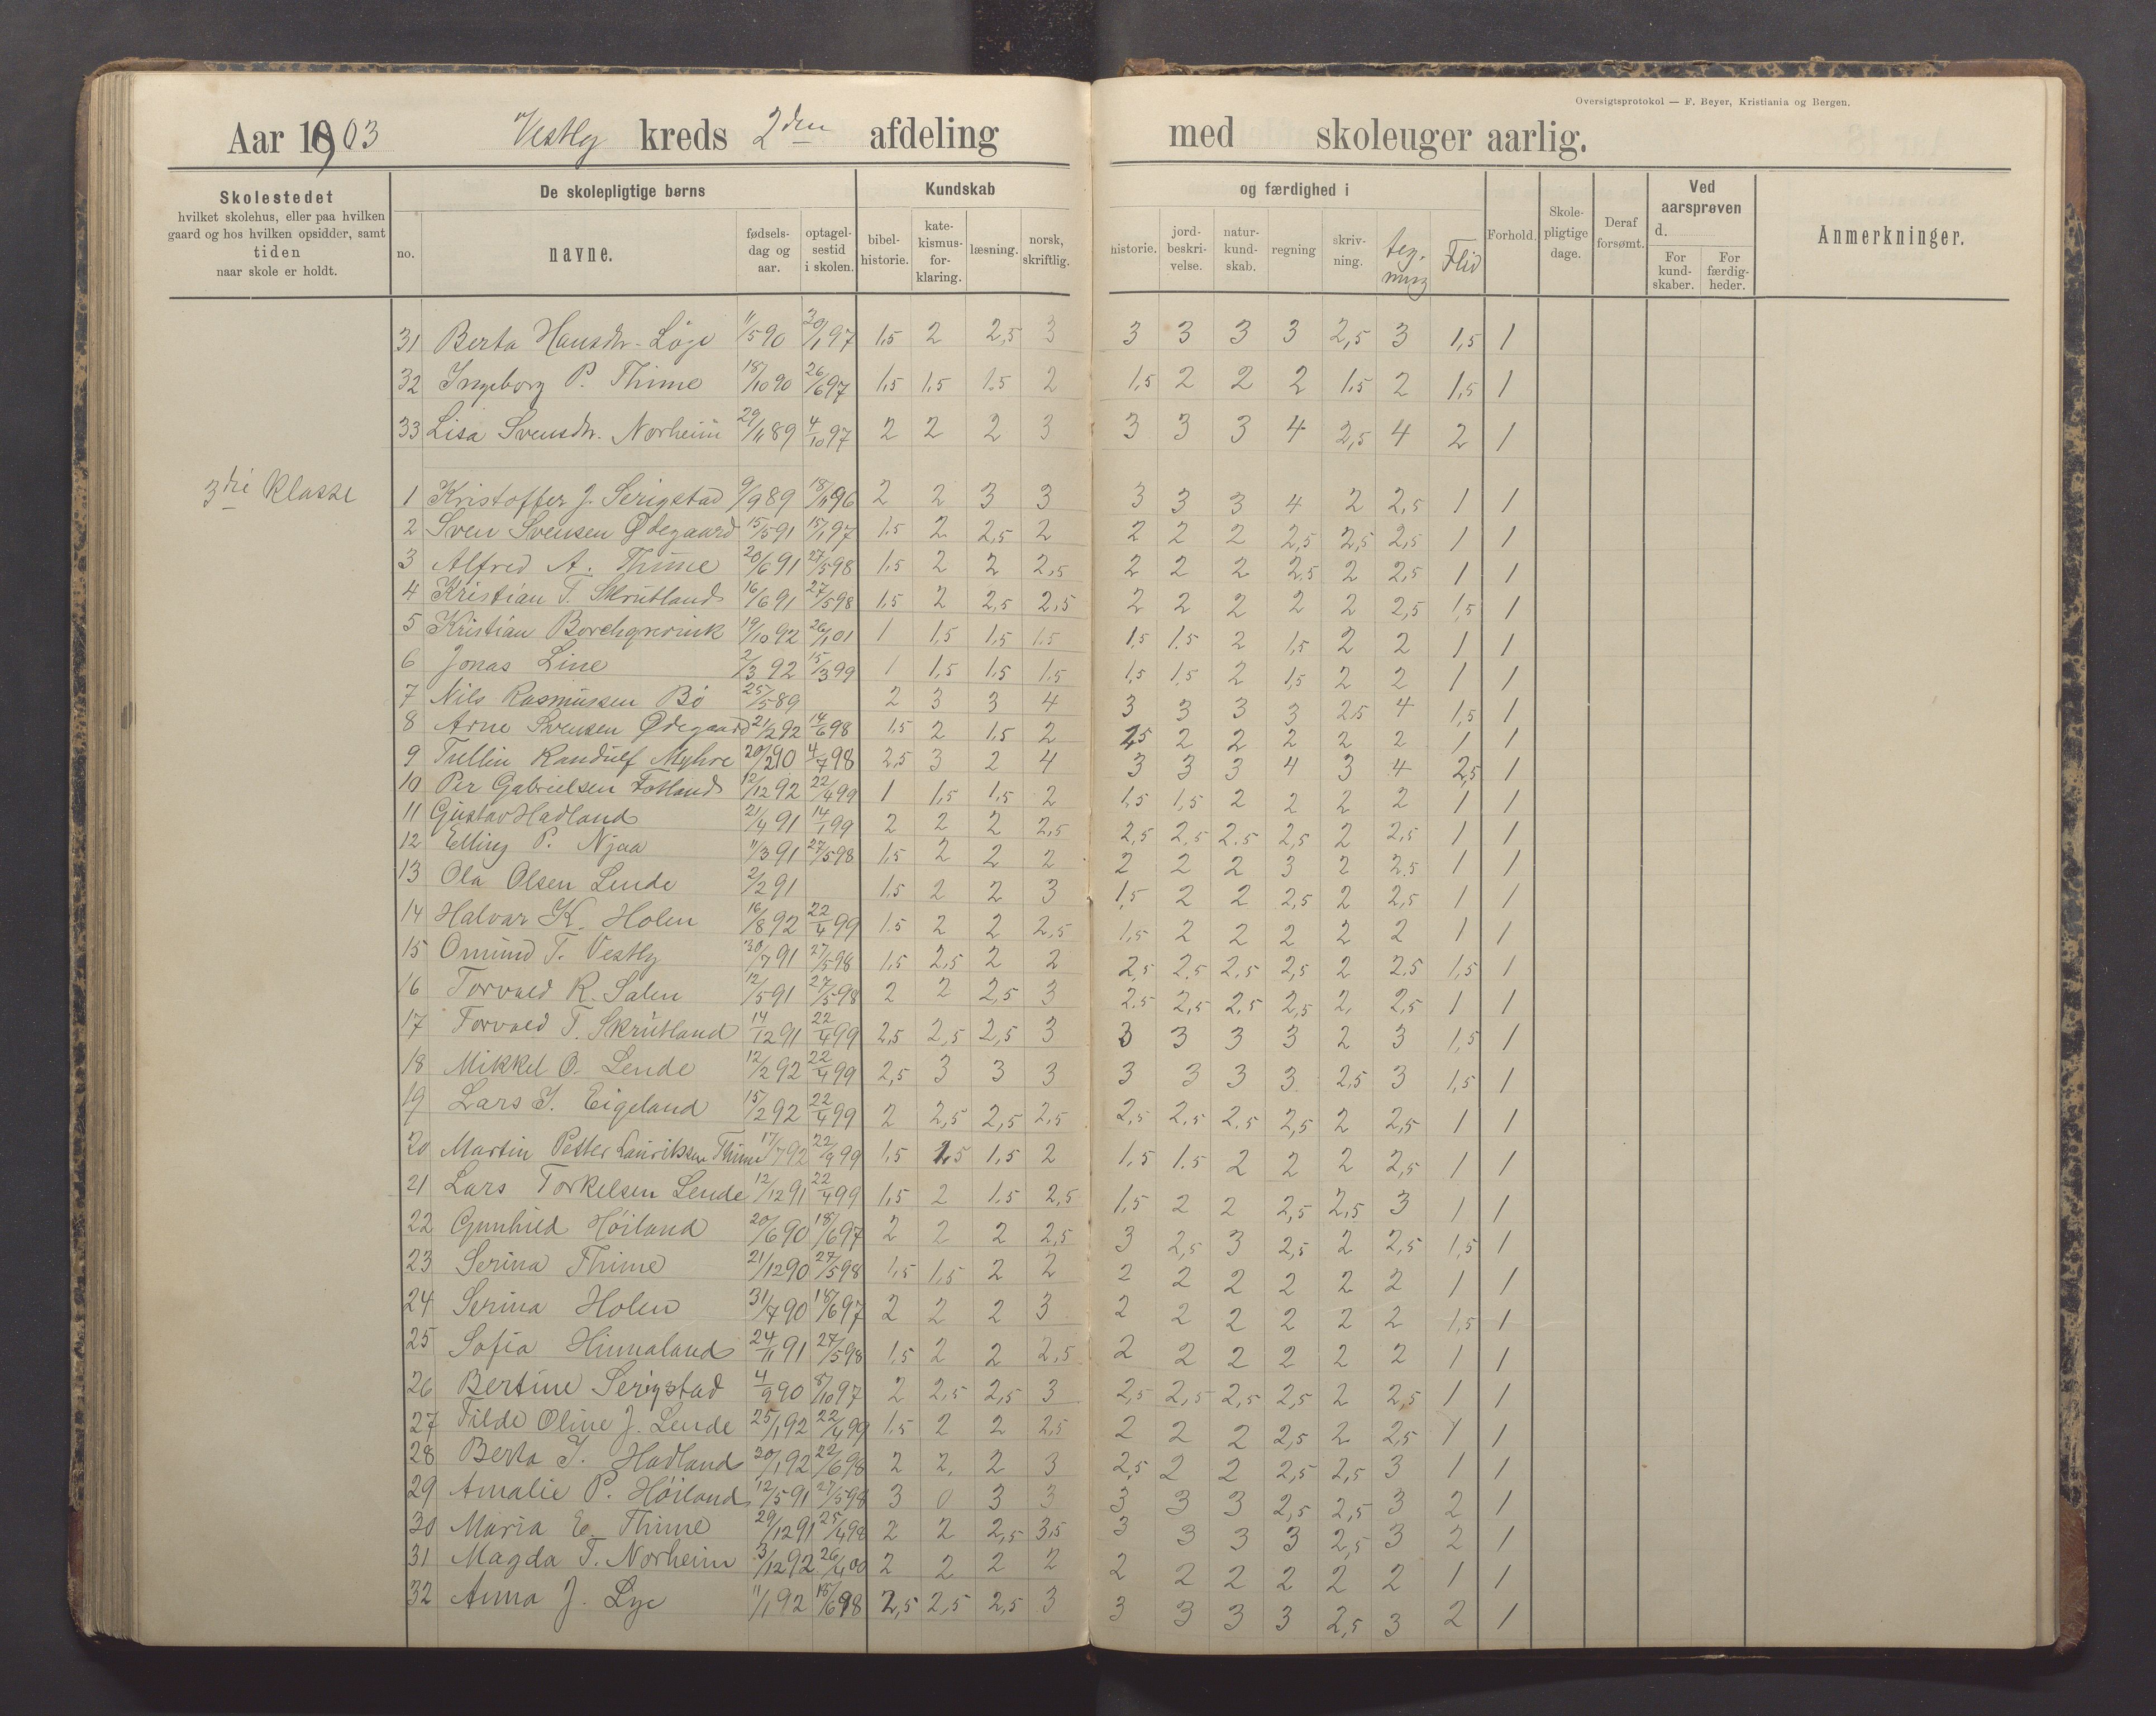 Oversigtsprotokol — F. Beyer, Kristiania og Bergen.
Aar 1903 Vestly kreds 2den afdeling med skoleuger aarlig.
Skolestedet hvilket skolehus, eller paa hvilken gaard og hos hvilken opsidder, samt tiden naar skole er holdt.
De skolepligtige børns
no. navne. fødsels-dag og aar. optagel-sestid i skolen.
Kundskab og færdighed i
bibel-historie. kate-kismus-for-klaring. læsning. norsk, skriftlig. historie. jord-beskri-velse. natur-kund-skab. regning skriv-ning. tegning Flid
Forhold. Skole-pligtige dage. Deraf forsømt. Ved aarsprøven d. For kund-skaber. For færdig-heder. Anmerkninger.
31 Berta Hansdtr. Løge 11/5 90 20/1 97 1,5 2 2,5 3 3 3 3 3 2,5 3 1,5 1
32 Ingeborg P. Thime 18/10 90 26/6 97 1,5 1,5 1.5 2 1,5 2 2 2 1.5 2 1,5 1
33 Lisa Svensdtr. Norheim 29/11 89 4/10 97 2 2 2 3 3 3 3 4 2,5 4 2 1
3die Klasse
1 Kristoffer J. Serigstad 9/9 89 18/11 96 2 2 3 3 3 3 3 4 2 2,5 1 1
2 Sven Svensen Ødegaard 15/5 91 15/1 97 1.5 2 2,5 2 2 2 2 2,5 2,5 2,5 1 1
3 Alfred A. Thime 20/6 91 27/5 98 1,5 2 2 2,5 2 2 2 2.5 2 2,5 1 1
4 Kristian T. Skrutland 16/6 91 27/5 98 1,5 2 2,5 2,5 2 2 2 2 2 2,5 1,5 1
5 Kristian Borchgrevink 19/10 92 26/1 01 1 1,5 1,5 1.5 1,5 1.5 2 1,5 2 2 1 1
6 Jonas Line 2/3 92 15/3 99 1 1,5 1,5 1.5 1,5 1,5 2 1,5 2 2 1 1
7 Nils Rasmussen Bø 25/5 89 2 3 3 4 3 3 3 3 2.5 4 1,5 1
8 Arne Svensen Ødegaard 21/2 92 14/6 98 1,5 2 1.5 2 2,5 2 2 2 2 2 1 1
9 Tullin Randulf Myhre 20/2 90 4/7 98 2,5 3 2 4 3 3 3 4 3 4 2,5 1
10 Per Gabrielsen Fotland 12/12 92 22/4 99 1 1,5 1,5 2 1,5 1,5 2 2 2 2 1 1
11 Gustav Hadland 21/4 91 14/1 99 2 2 2 2,5 2,5 2,5 2.5 2,5 2 2,5 1 1
12 Elling P. Njaa 11/3 91 27/5 98 1,5 2 2 2 2 2 2 3 2 2.5 1 1
13 Ola Olsen Lende 2/2 91 1.5 2 2 3 1,5 2 2 2,5 2 2,5 1 1
14 Halvar K. Holen 16/8 92 22/4 99 1.5 2 2 2,5 1,5 2 2 2 2 2 1 1
15 Omund T. Vestly 30/7 91 27/5 98 1,5 2,5 2 2 2,5 2.5 2.5 2,5 2 2.5 1,5 1
16 Torvald R. Salen 12/5 91 27/5 98 2 2 2,5 3 2.5 2,5 2.5 2,5 2, 2,5 1 1
17 Torvald T. Skrutland 14/12 91 22/4 99 2,5 2,5 2,5 3 3 3 3 3 2 3 1,5 1
18 Mikkel O. Lende 12/2 92 22/4 99 2,5 3 3 3 3 3 3 3 2,5 3 1,5 1
19 Lars J. Eigeland 15/2 92 22/4 99 2 2,5 2,5 2,5 2,5 2.5 2.5 2,5 2 2,5 1 1
20 Martin Petter Lauritssen Thime 17/7 92 22/4 99 1,5 1,5 1,5 2 1,5 1.5 2 2 2 2,5 1 1
21 Lars Torkelsen Lende 12/12 91 22/4 99 1,5 2 1,5 2,5 1,5 2 2 2,5 2,5 3 1 1
22 Gunhild Høiland 20/6 90 18/6 97 2 2 2 2,5 3 2,5 3 2,5 2 2,5 1,5 1
23 Serina Thime 21/12 90 27/5 98 1,5 1,5 2 2 2 2 2 2 2 2 1 1
24 Serina Holen 31/7 90 18/6 97 2 2 2 3 2 2 2 2 2 2 1,5 1
25 Sofia Hinnaland 24/11 91 27/5 98 1,5 2 2 2,5 2 2 2 2 2 2 1 1
26 Bertine Serigstad 4/9 90 8/10 97 2 2,5 2,5 3 2,5 2,5 2,5 2,5 2 2,5 1 1
27 Tilde Oline J. Lende 25/1 92 22/4 99 1.5 2 2 2,5 2 2 2 2,5 2 2,5 1 1
28 Berta T. Hadland 30/1 92 22/6 98 2 2, 2 3 2,5 2 2 2,5 2,5 3 1 1
29 Amalie P. Høiland 12/5 91 27/5 98 3 0 3 3 3 3 3 2,5 2,5 3 2 1
30 Maria E. Thime 29/12 91 25/4 98 2 2 2,5 3,5 3 3 3 3 2,5 3 2 1
31 Magda T. Norheim 3/12 92 26/4 00 2 2 2 2 2 2 2 2 2 2 1 1
32 Anna J. Lye 11/1 92 18/6 98 2,5 2,5 2,5 3 3 3 3 3 2,5 3 2 1